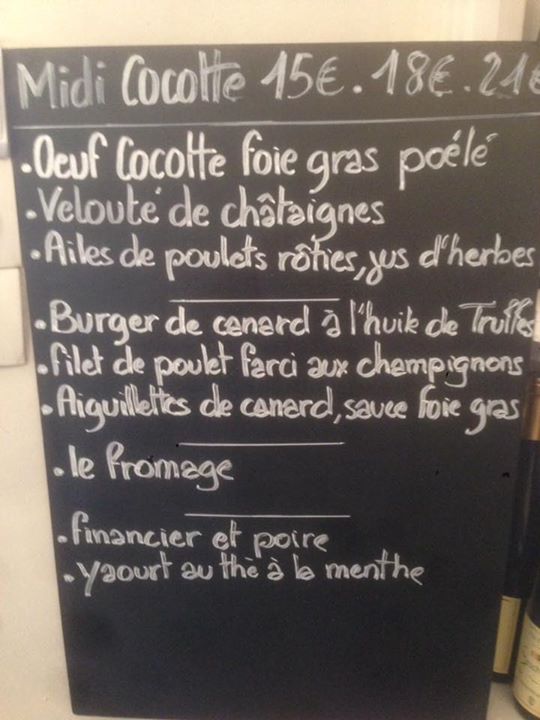 Midi Cocotte 15€. 18€. 21€
.Oeuf Cocotte foie gras poêlé
.Velouté de châtaignes
.Ailes de poulets rôties, jus d'herbes
.Burger de canard à l'huile de Truffes
.filet de poulet farci aux champignons
.Aiguillettes de canard, sauce foie gras
.le fromage
.financier et poire
.yaourt au thé à la menthe